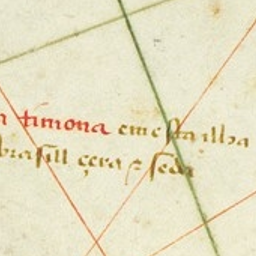 timona em esta ilha
brasill çera & seda